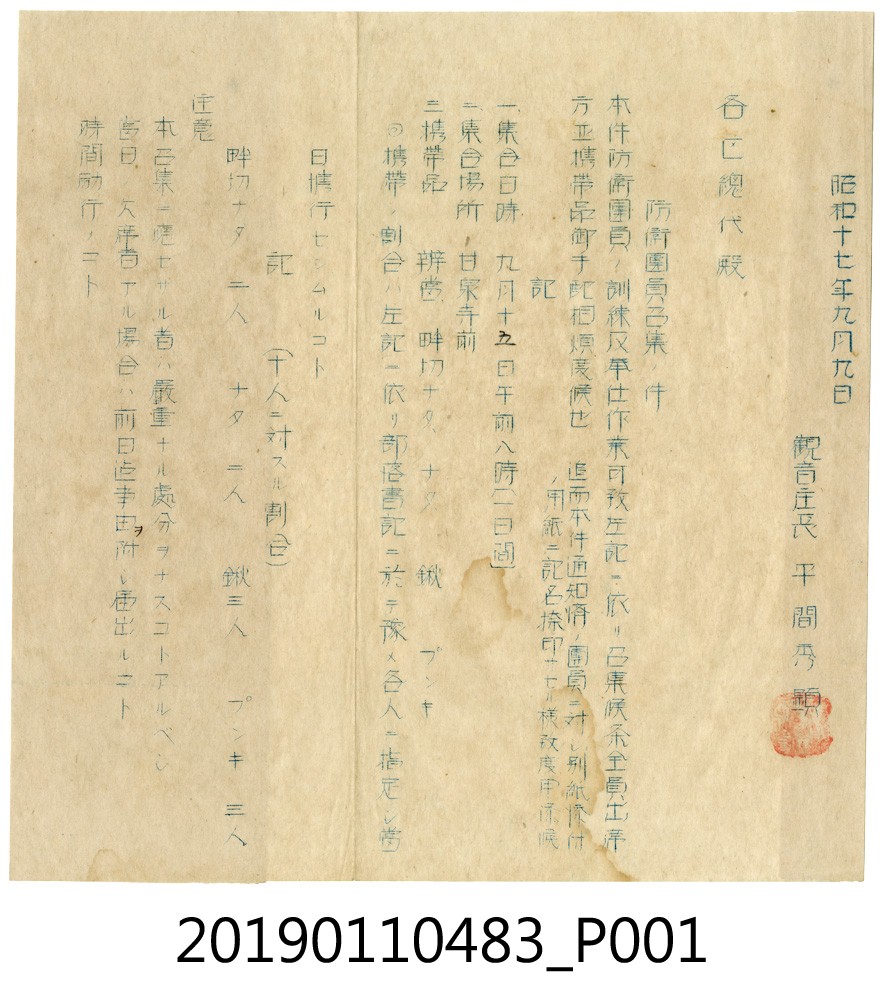 昭和十七年九月九日
觀音庄長 平間秀顯
各區總代殿
防衛團員召集ノ件
本件防衛團員ノ訓練及奉仕作業可致左記ニ依リ召集候条全員出席
方並携帶品御手配相煩度候也 追而本件通知濟ノ團員ニ対シ別紙添付
ノ用紙ニ記名捺印サセル樣致度申添候
記
一、集合日時 九月十五日午前八時(一日間)
二、集合場所 甘泉寺前
三、携帶品 辨當、畔切ナタ、ナタ 鍬 プンキ
◎携帶ノ割合ハ左記ニ依リ部落書記ニ於テ豫メ各人ニ指定シ當
日携行セシムルコト
記 (十人ニ対スル割合)
畔切ナタ 二人 ナタ 二人 鍬 三人 プンキ 三人
注意
本召集ニ應セザル者ハ嚴重ナル處分ヲナスコトアルベシ
當日欠席者ナル場合ハ前日迄事由ヲ附シ届出ルコト
時間励行ノコト
20190110483_P001